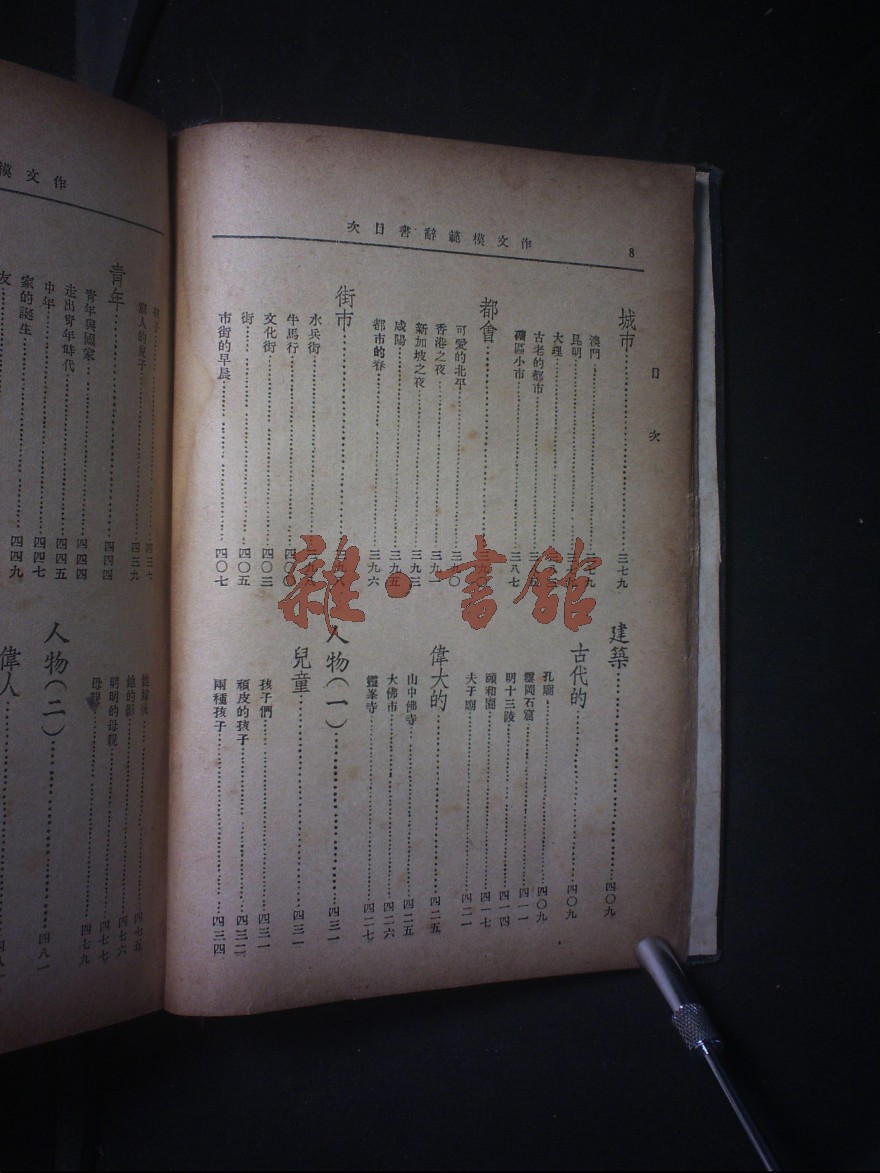 作文模範辭書目次
8
目次
城市 三七九
澳門 三七九
昆明
大理
古老的都市
礦區小市 三八七
都會 三九〇
可愛的北平 三九〇
香港之夜 三九一
新加坡之夜 三九三
咸陽 三九五
都市的春 三九六
街市 三九八
水兵街 三九八
牛馬行 四〇〇
文化街 四〇三
街 四〇五
市街的早晨 四〇七
建築 四〇九
古代的 四〇九
孔廟 四〇九
雲岡石窟 四一一
明十三陵 四一四
頤和園 四一七
夫子廟 四二一
偉大的 四二五
山中佛寺 四二五
大佛市 四二六
靈峯寺 四二七
人物(一) 四三一
兒童 四三一
孩子們 四三一
頑皮的孩子 四三二
兩種孩子 四三四
雜·書館
作文模
四三七
窮人的兒子 四三九
青年 四四四
青年與國家 四四四
走出青年時代 四四五
中年 四四七
家的誕生 四四九
友
四七五
四七六
明明的母親 四七七
母親 四七九
人物(二) 四八一
偉人